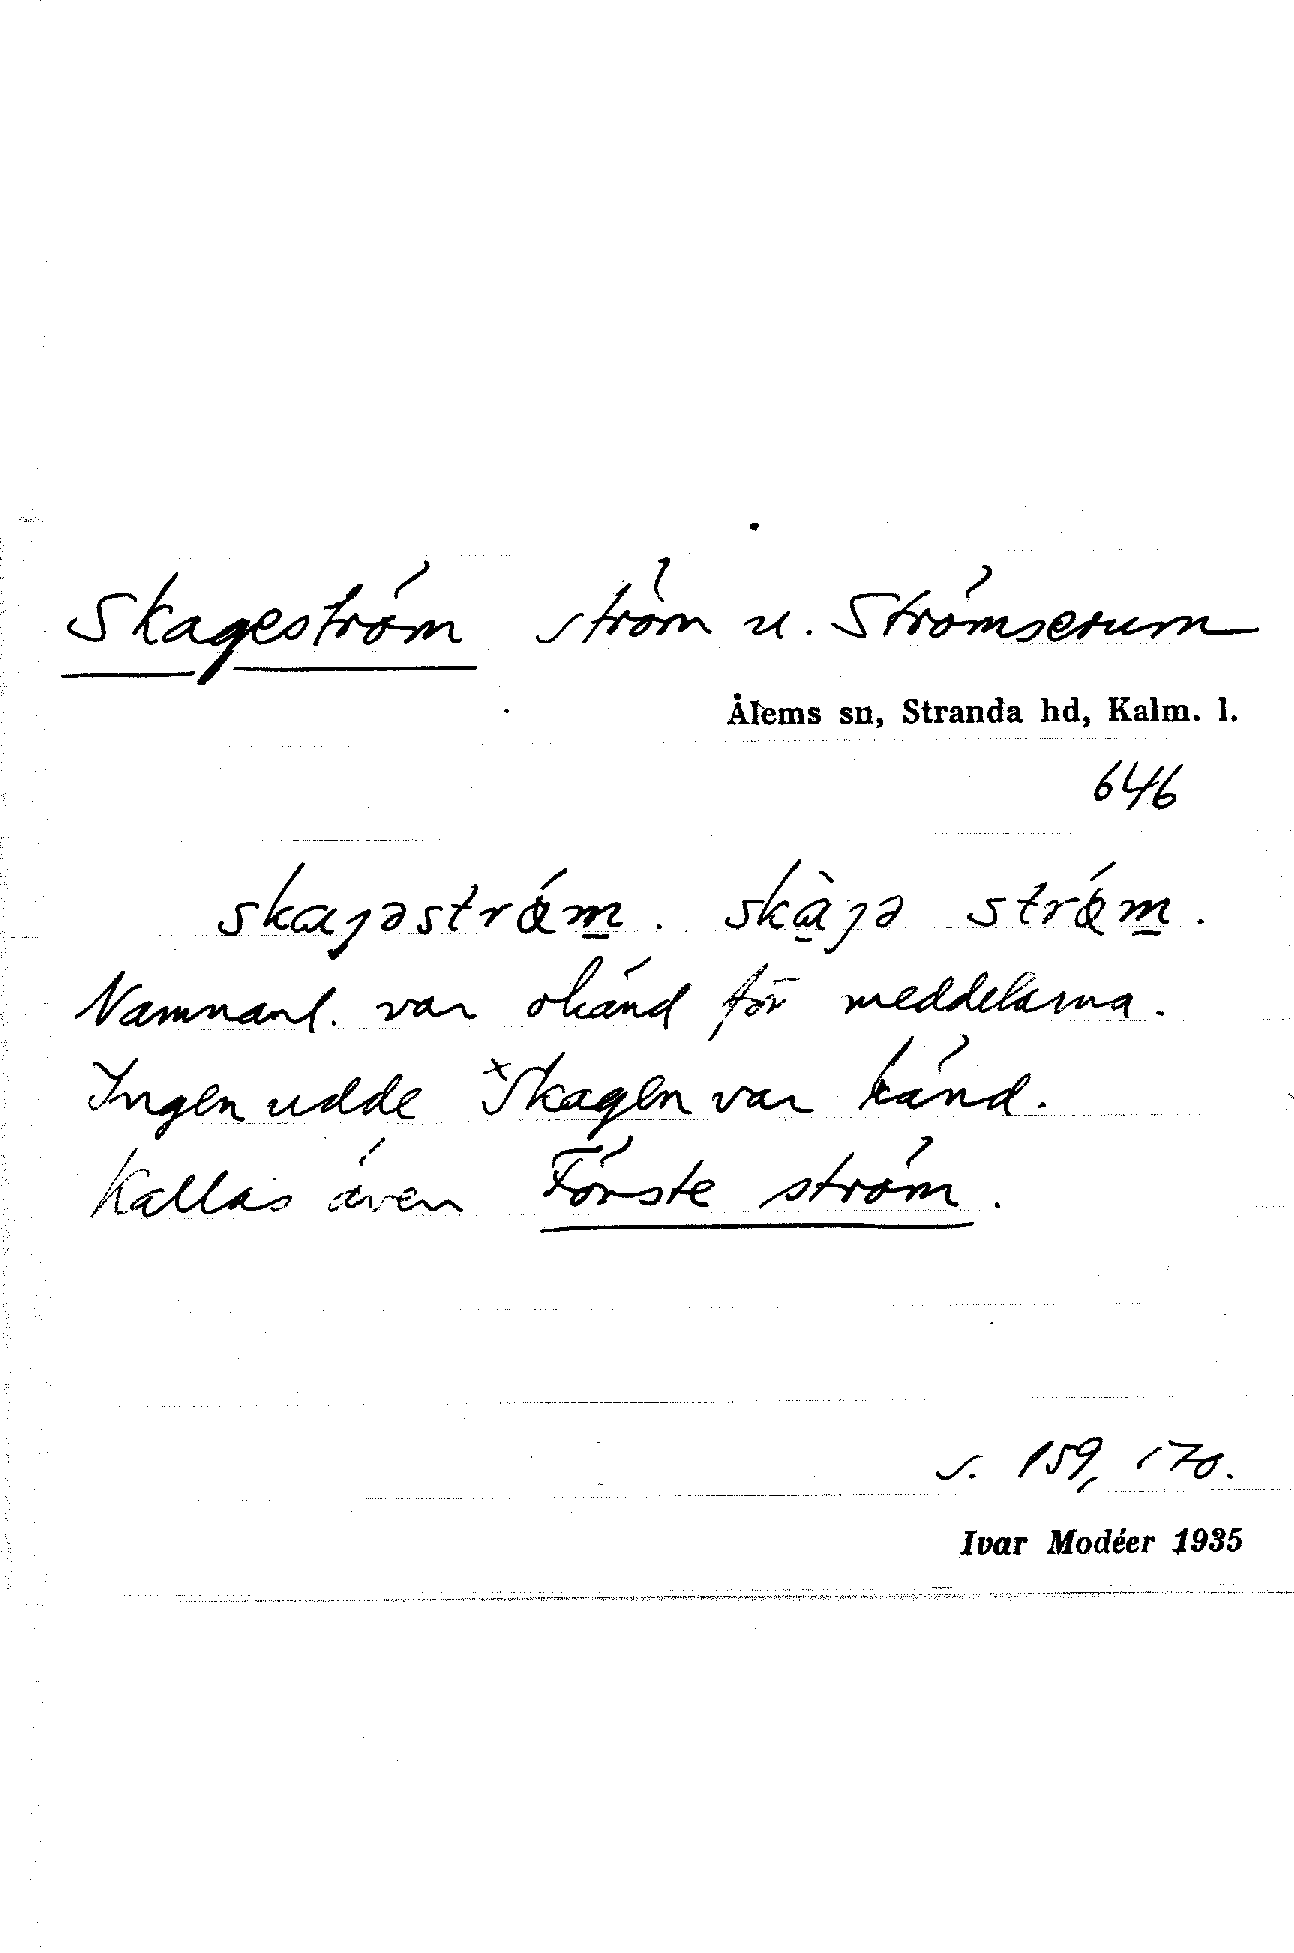 Skageström ström u. Strömserum
Ålems sn, Stranda hd, Kalm. l.
646
skaȷəstrǿm̲. skàȷə strǿm̲.
Namnanl. var okänd för meddelarna.
Ingen udde ˣSkagen var känd.
Kallas även Förste ström.
s. 159, 170.
Ivar Modéer 1935